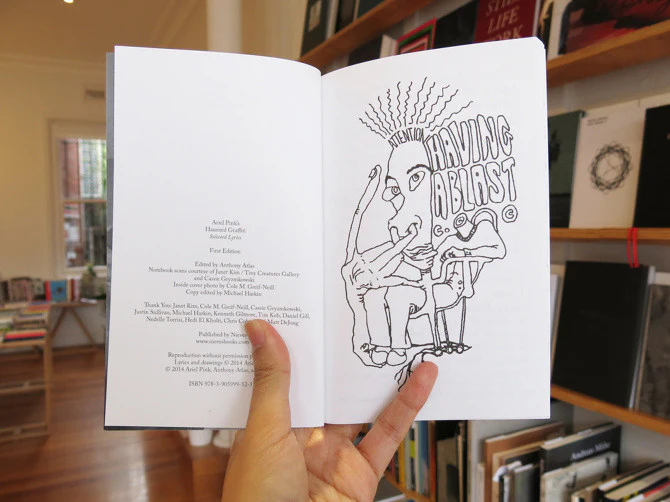 Ariel Pink's
Haunted Graffiti
Selected Lyrics
First Edition
Edited by Anthony Atlas
Notebook scans courtesy of Janet Kim / Tiny Creatures Gallery
and Cassie Grzymkowski.
Inside cover photo by Cole M. Greif-Neill.
Copy edited by Michael Harkin
Thank You: Janet Kim, Cole M. Greif-Neill, Cassie Grzymkowski,
Justin Sullivan, Michael Harkin, Kenneth Gilmore, Tim Koh, Daniel Gill,
Nedelle Torrisi, Hedi El Kholti, Chris Matt DeJong
Published by
Reproduction without permission
Lyrics and drawings © 2014 Ariel
© 2014 Ariel Pink, Anthony Atlas,
ISBN 978-3-905999-52-
ATTENTION
HAVING
A BLAST
STILL
LIFE